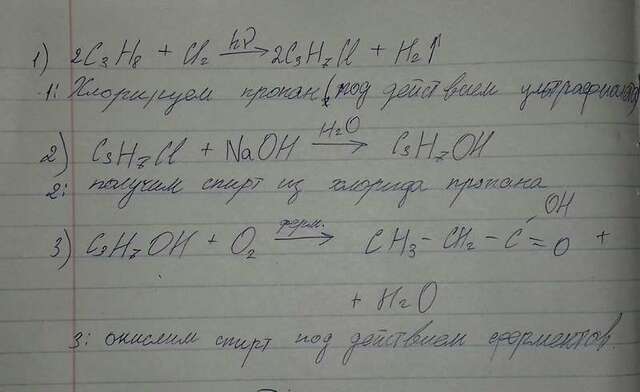 1) 2C₃H₈ + Cl₂ —hν→ 2C₃H₇Cl + H₂↑
1: Хлорируем пропан (под действием ультрафиолета)
2) C₃H₇Cl + NaOH —H₂O→ C₃H₇OH
2: получим спирт из хлорида пропана
OH
3) C₃H₇OH + O₂ —ферм.→ CH₃–CH₂–C=O +
+ H₂O
3: окислим спирт под действием ферментов.